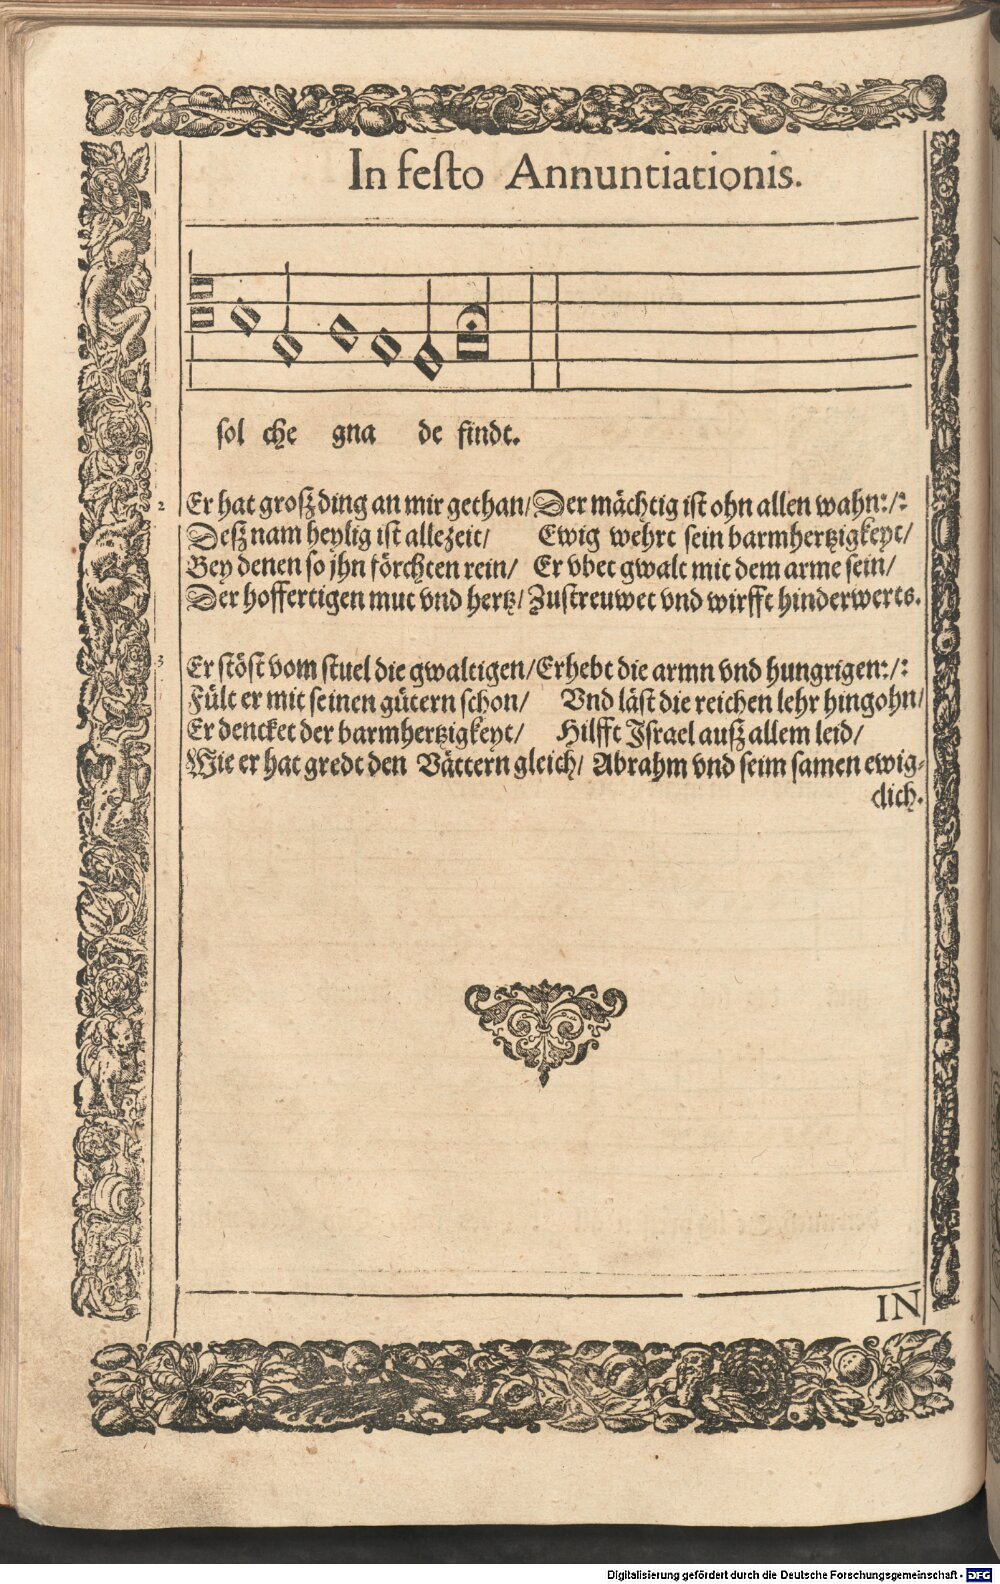 In festo Annuntiationis.
sol che gna de findt.
2 Er hat grosz ding an mir gethan/ Der mächtig ist ohn allen wahn:/:
Desz nam heylig ist allezeit/ Ewig wehrt sein barmhertzigkeyt/
Bey denen so jhn förchten rein/ Er vbet gwalt mit dem arme sein/
Der hoffertigen mut vnd hertz/ Zustreuwet vnd wirfft hinderwerts.
3 Er stöst vom stuel die gwaltigen/ Erhebt die armn vnd hungrigen:/:
Fült er mit seinen gütern schon/ Vnd läst die reichen lehr hingohn/
Er dencket der barmhertzigkeyt/ Hilfft Jsrael ausz allem leid/
Wie er hat gredt den Vättern gleich/ Abrahm vnd seim samen ewig-
clich.
IN
Digitalisierung gefördert durch die Deutsche Forschungsgemeinschaft - DFG